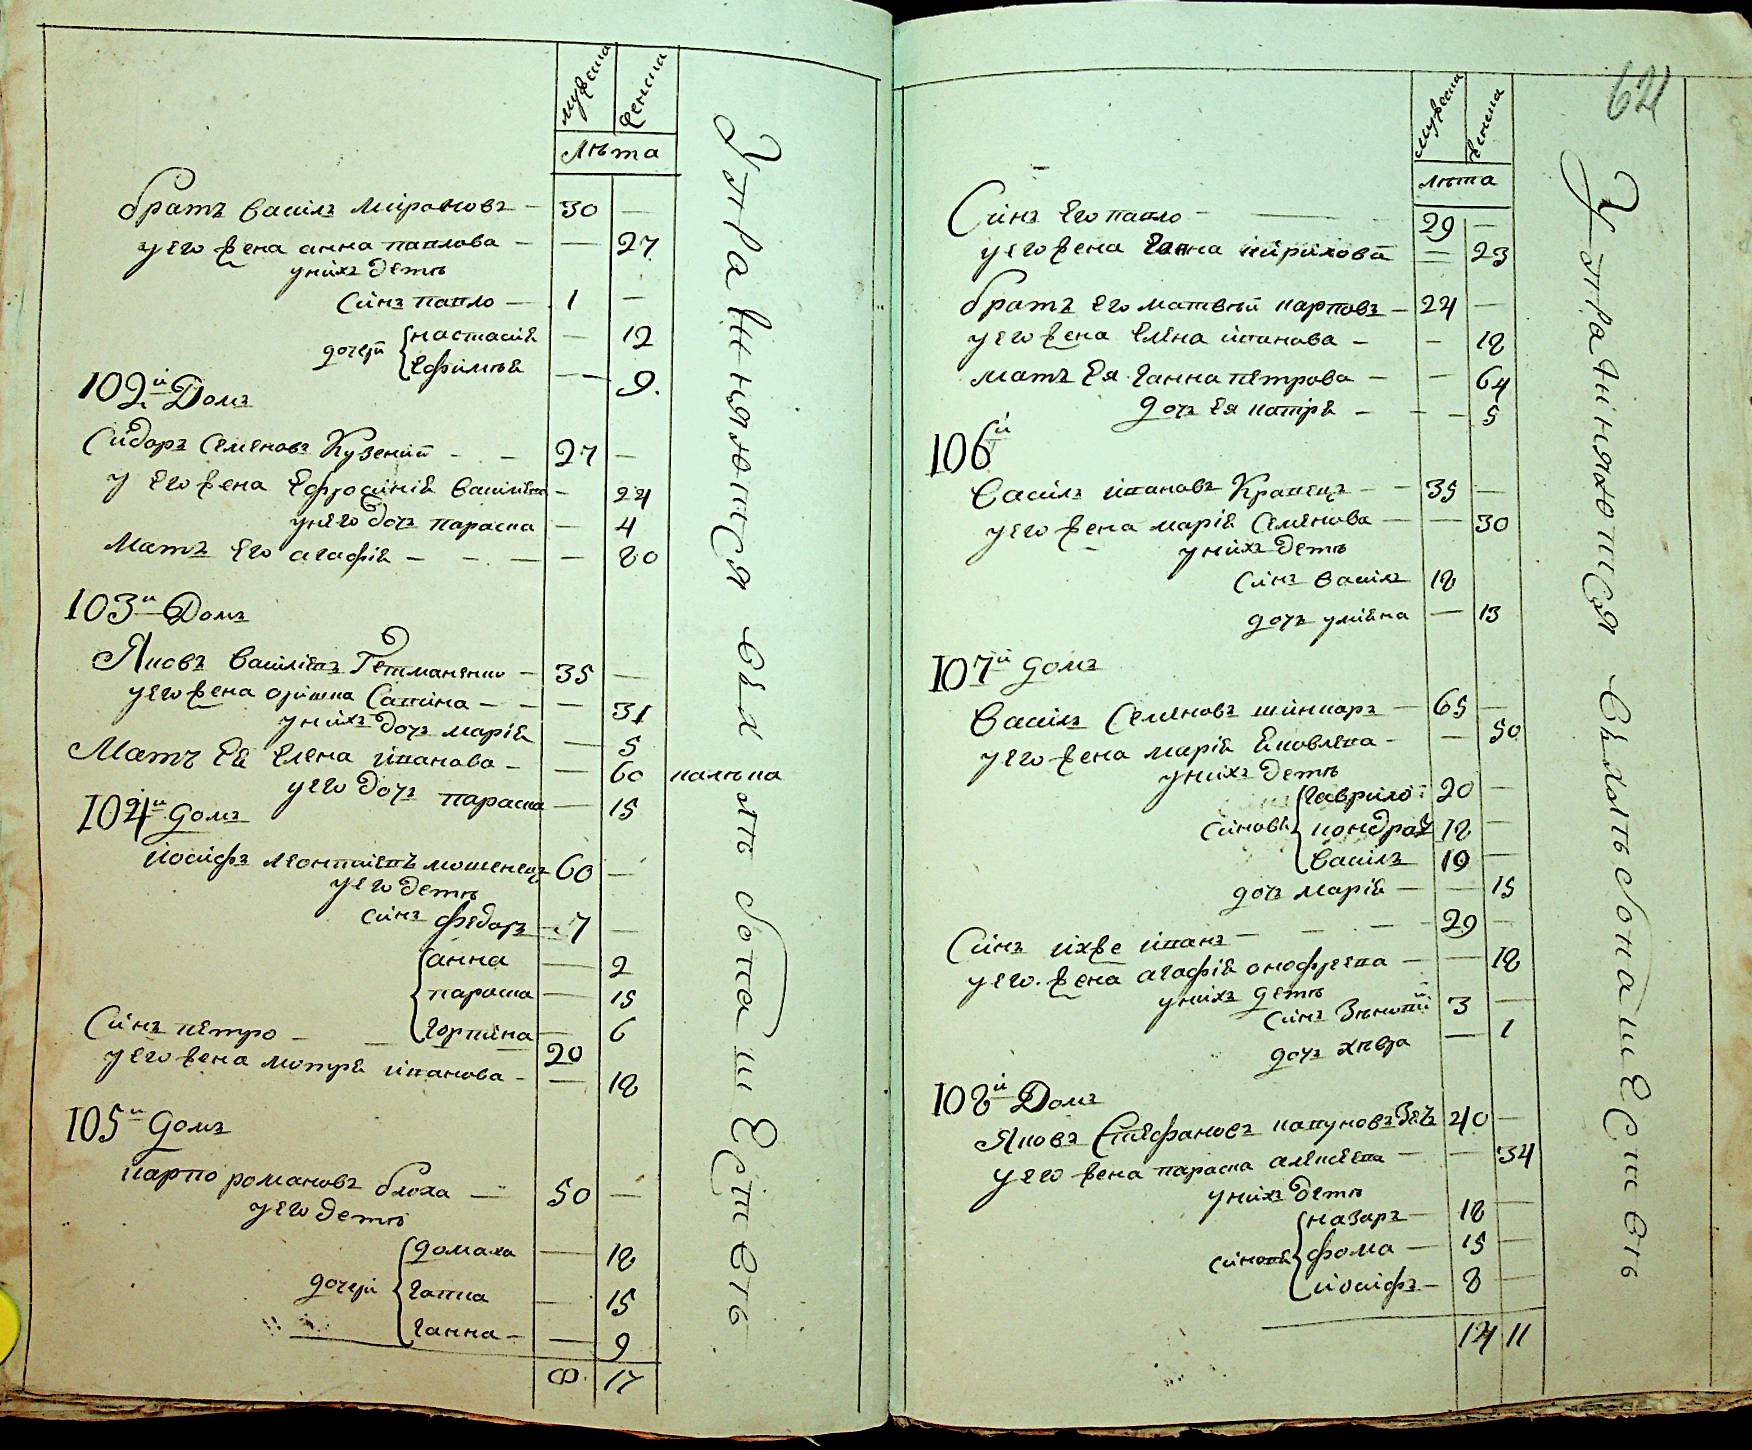 мужеска
женска
лѣта
братъ василъ мироновъ — 30 —
у его жена анна павлова — — 27
у нихъ детѣ
синъ павло — 1 —
дочери настасия — 12
ефимия — — 9.
102й Домъ
Сидоръ Семеновъ Кузений — — 27 —
у его жена Ефросиния василиева — 24
у него доч параска — 4
Мать его агафия — — — — 80
103й Домъ
Яковъ василіевъ Гетманенко — 35 —
у его жена оришка Савина — — — 31
у нихъ доч мария — 5
Мать ея Елена иванова — — 60 калѣка
у его доч параска — 15
104й домъ
иосифъ леонтиевъ мошенецъ 60 —
у его детѣ
синъ федоръ — 7 —
анна — 2
параска — 15
горпина — 6
Синъ петро — — — 20
у его жена мотря иванова — — 18
105й домъ
карпо романовъ блоха — 50 —
у его детѣ
домаха — 18
дочери гапка — 15
ганна — — 9
8 17
Управиняются вѣхлѣбопашествѣ
62
мужеска
женска
лѣта
Синъ его павло — 29 —
у его жена ганна кирилова — 23
братъ его матвѣй карповъ — 24 —
у его жена елена иванова — — 18
мать ея ганна петрова — — 64
доч ея катря — — — 5
106й
василъ ивановъ Кравецъ — — 35 —
у его жена мария Семенова — — 30
у нихъ детѣ
синъ василъ 18
доч улияна — 13
107й домъ
василъ Семеновъ шинкаръ — 65 —
у его жена мария яковлева — — 50
у нихъ детѣ
гаврило 20 —
синовя кондрат 18 —
василъ 19 —
доч мария — — 15
Синъ ихже иванъ — — — 29 —
у его жена агафия онофреева — — 18
у нихъ детѣ
синъ Зѣновий 3 —
доч хивря — 1
108й Домъ
Яковъ Стефановъ капуновъ 40 —
у его жена параска алексеева — — 34
у нихъ детѣ
назаръ — 18 —
синовя фома — 15 —
иосифъ — 8 —
14 11
Управиняются вѣхлѣбопашествѣ